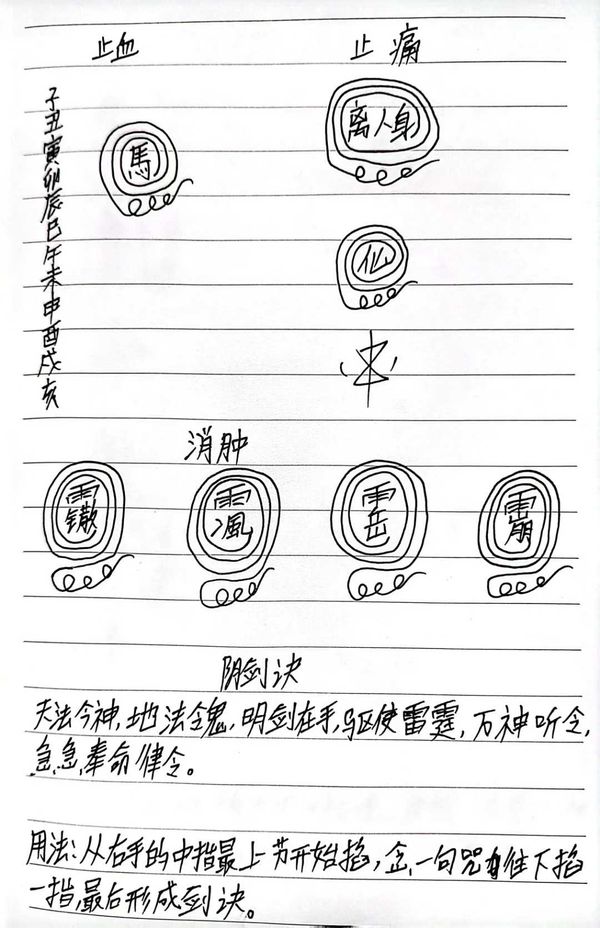 止血
止痛
子丑寅卯辰巳午未申酉戌亥
馬
离人身
仙
消肿
阴剑决
天法令神,地法令鬼,明剑在手,驱使雷霆,万神听令,
急急奉命律令。
用法:从右手的中指最上节开始掐,念一句咒往下掐
一指,最后形成剑诀。